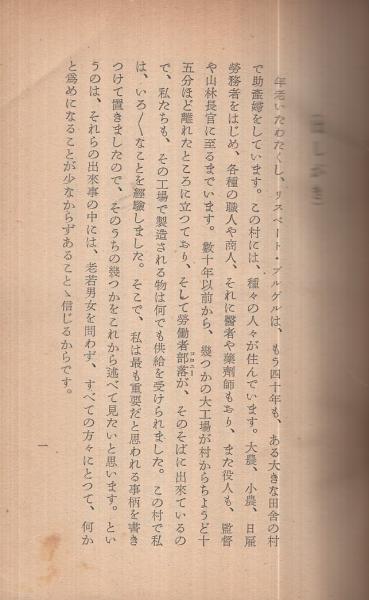 はしがき
年老いたわたくし、リスベート・ブルゲルは、もう四十年も、ある大きな田舎の村
で助産婦をしています。この村には、種々の人々が住んでいます。大農、小農、日雇
勞務者をはじめ、各種の職人や商人、それに醫者や藥劑師もおり、また役人も、監督
や山林長官に至るまでいます。數十年以前から、幾つかの大工場が村からちょうど十
五分ほど離れたところに立つており、そして勞働者部落が、そのそばに出來ているの
コロニー
で、私たちも、その工場で製造される物は何でも供給を受けられました。この村で私
は、いろ〳〵なことを經驗しました。そこで、私は最も重要だと思われる事柄を書き
つけて置きましたので、そのうちの幾つかをこれから述べて見たいと思います。とい
うのは、それらの出來事の中には、老若男女を問わず、すべての方々にとつて、何か
と爲めになることが少なからずあることゝ信じるからです。
一